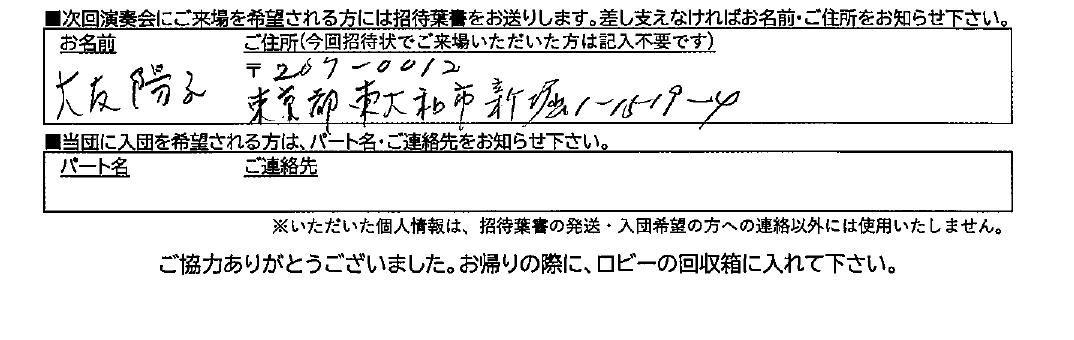 ■次回演奏会にご来場を希望される方には招待葉書をお送りします。差し支えなければお名前・ご住所をお知らせ下さい。
お名前 ご住所(今回招待状でご来場いただいた方は記入不要です)
〒207-0012
大友陽子 東京都東大和市新堀1-15-19-4
■当団に入団を希望される方は、パート名・ご連絡先をお知らせ下さい。
パート名 ご連絡先
※いただいた個人情報は、招待葉書の発送・入団希望の方への連絡以外には使用いたしません。
ご協力ありがとうございました。お帰りの際に、ロビーの回収箱に入れて下さい。